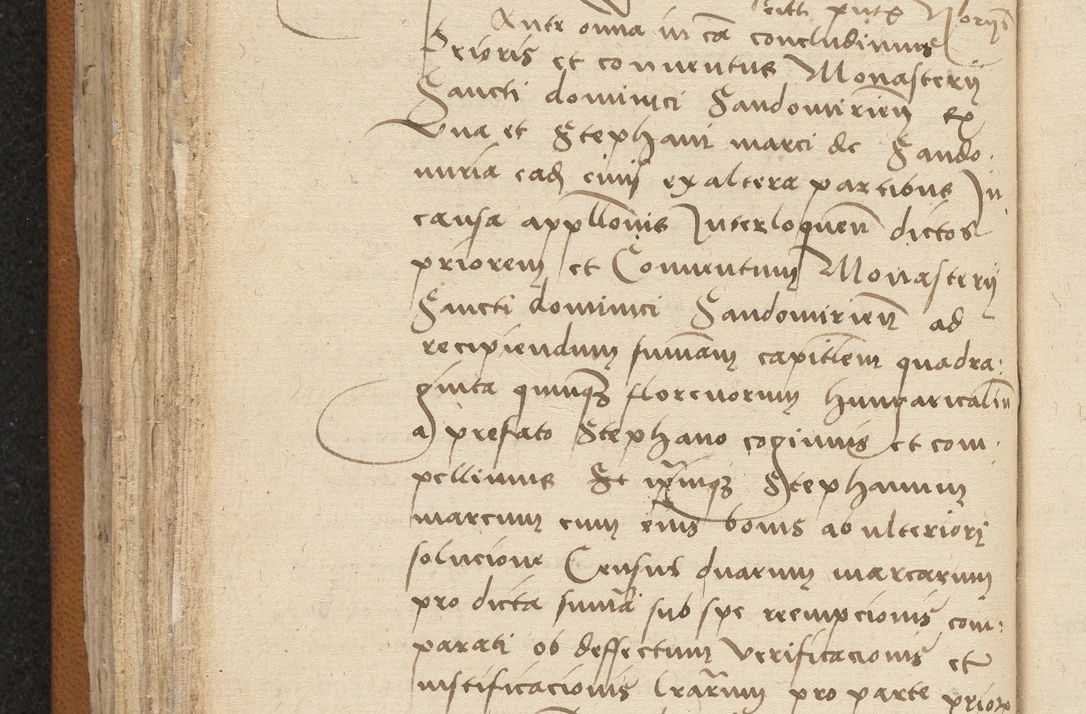 Ante omnia in ca concludimus
Prioris et conuentus Monasterij
Sancti dominici Sandomirien ex
vna et Stephani marci de Sando
miria ead cuius ex altera partibus In
causa appllonis Interloquen dictos
priorem et Conuentum Monasterij
Sancti dominici Sandomirien ad
recipiendum summam capitlem quadra:
ginta quinqz florenorum hungaricalium
a prefato Stephano cogimus et com
pellimus Et ipsumqz Stephanum
marcum cum eius bonis ab ulteriori
solucione Census duarum marcarum
pro dicta summa sub spe reempcionis com:
parati ob deffectum verificacionis et
iustificacionis lrarum pro parte prior